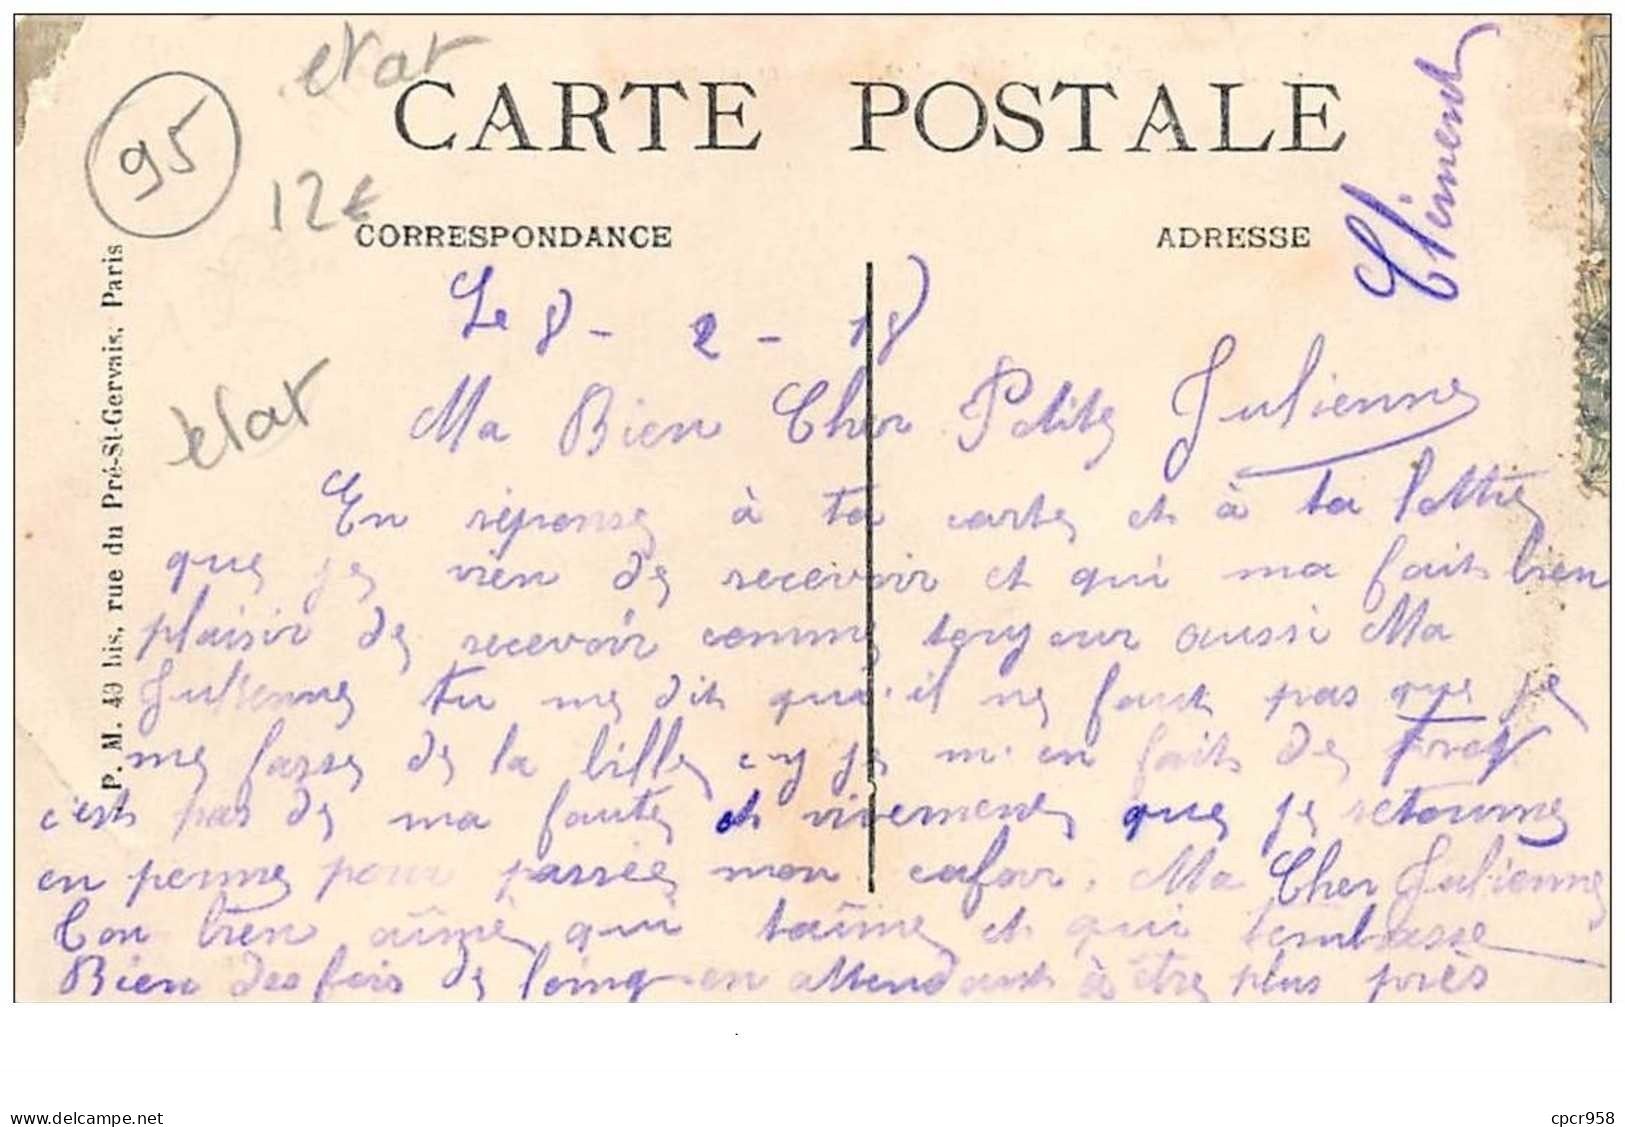 etat
CARTE POSTALE
95
12€
CORRESPONDANCE
ADRESSE
Clément
P. M. 49 bis, rue du Pré-St-Gervais, Paris
état
Le 8 - 2 - 18
Ma Bien Cher Petite Julienne
En réponse à ta carte et à ta lettre
que je vien de recevoir et qui ma fait bien
plaisir de recevoir comme toujour aussi Ma
Julienne tu me dit qu'il ne faut pas que je
me fasse de la bille je m'en fait de trop
c'est pas de ma faute et vivement que je retourne
en perme pour passée mon cafar. Ma Cher Julienne
Ton bien aimé qui taime et qui tembrasse
Bien des fois de loing en attendant à être plus près
cpcr958